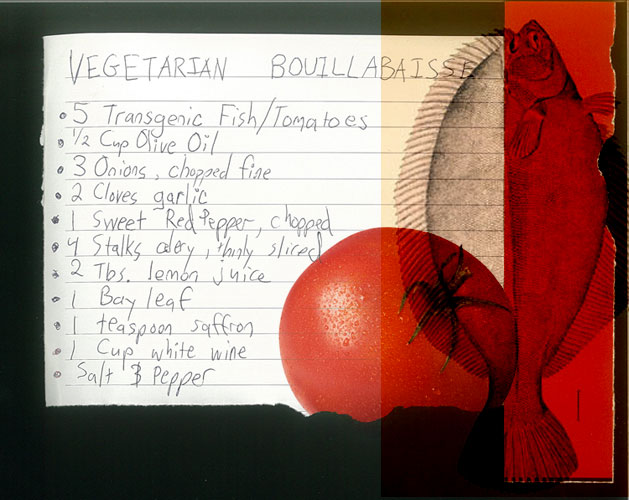 VEGETARIAN BOUILLABAISSE
• 5 Transgenic Fish/Tomatoes
• 1/2 Cup Olive Oil
• 3 Onions, chopped fine
• 2 Cloves garlic
• 1 Sweet Red Pepper, chopped
• 4 Stalks celery, thinly sliced
• 2 Tbs. lemon juice
• 1 Bay leaf
• 1 teaspoon saffron
• 1 Cup white wine
• Salt & Pepper